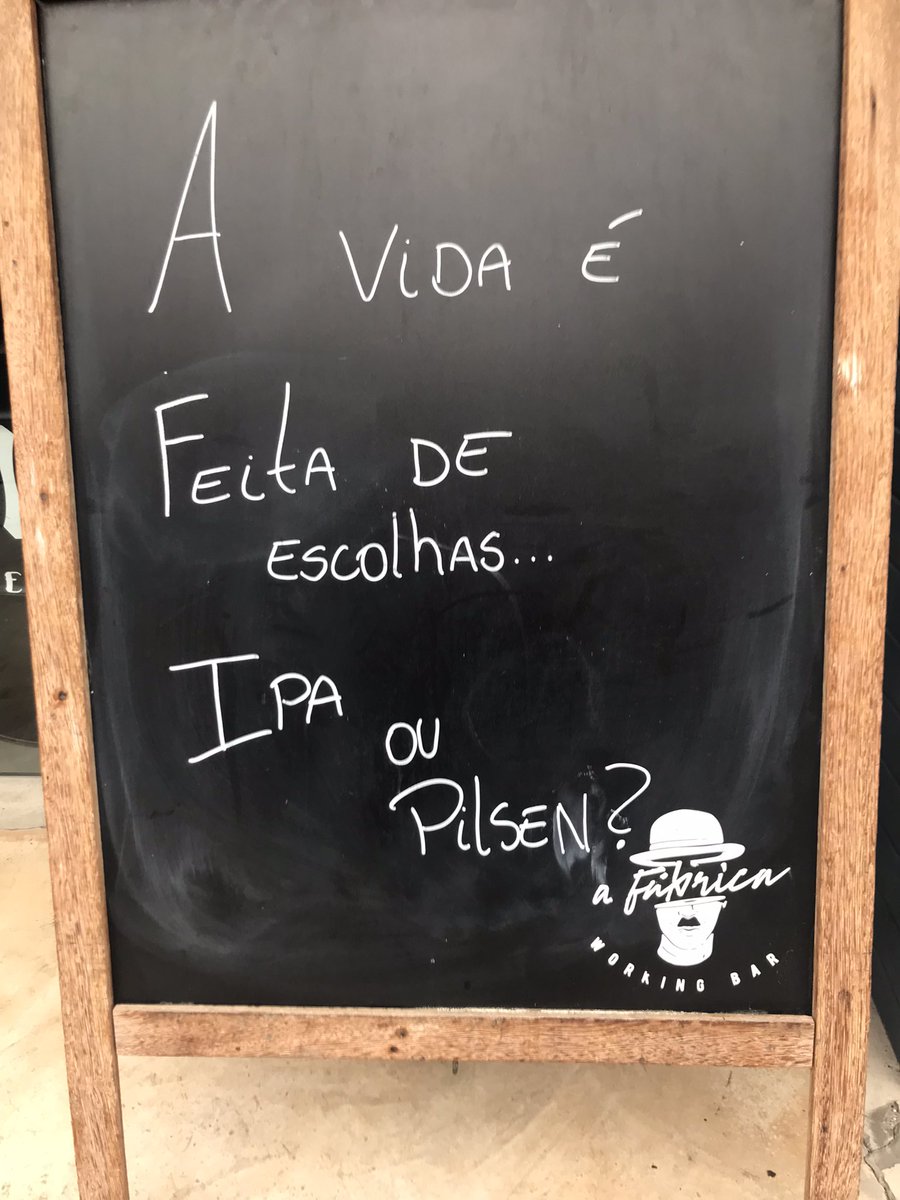 A VIDA É
FEITA DE
ESCOLHAS...
IPA
OU
PILSEN?
a fábrica
WORKING BAR
E